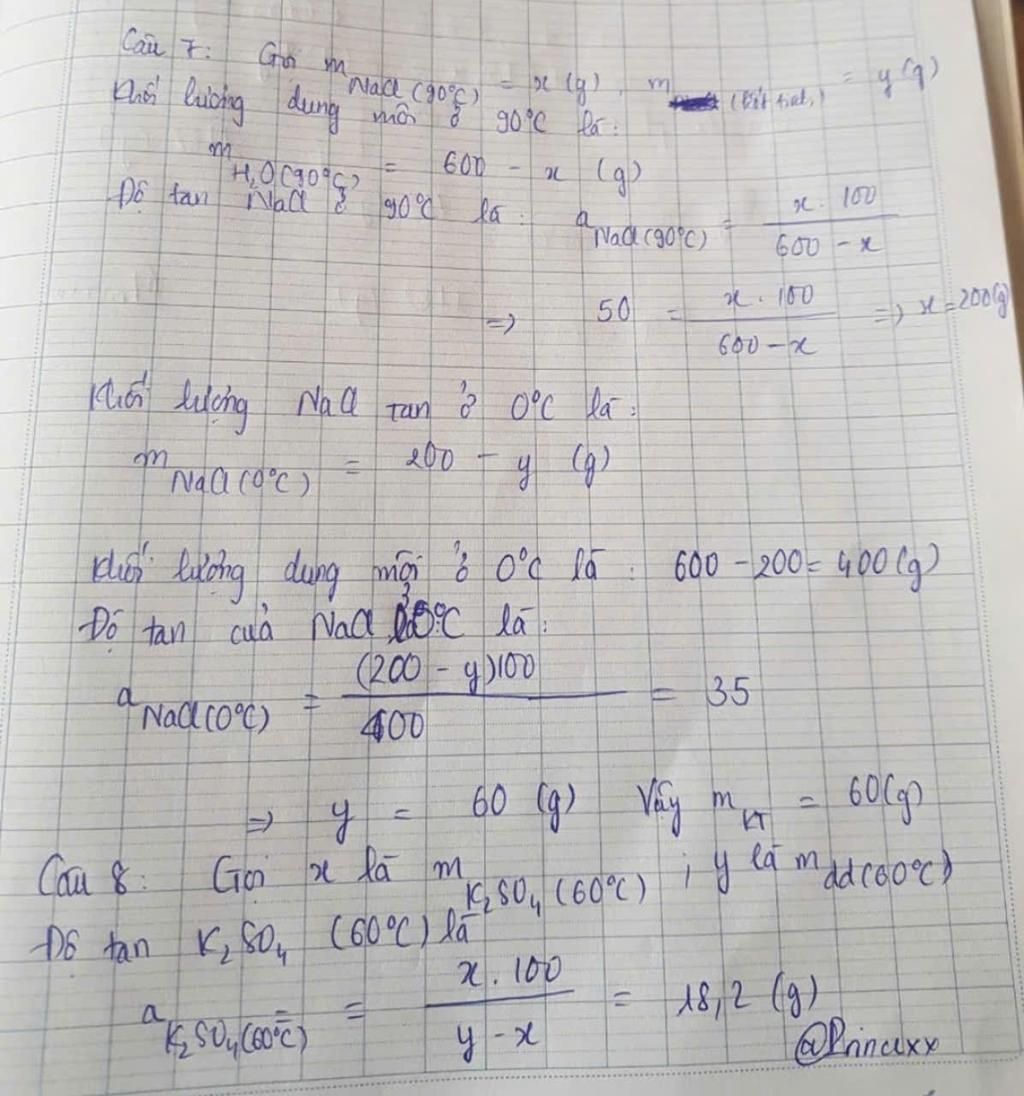 Câu 7: Gọi m NaCl (90°C) = x (g), m (kết tinh) = y (g)
Khối lượng dung môi ở 90°C là:
m H₂O (90°C) = 600 - x (g)
Độ tan NaCl ở 90°C là: a NaCl (90°C) = x . 100 / 600 - x
=> 50 = x . 100 / 600 - x => x = 200(g)
Khối lượng NaCl tan ở 0°C là:
m NaCl (0°C) = 200 - y (g)
Khối lượng dung môi ở 0°C là: 600 - 200 = 400 (g)
Độ tan của NaCl ở 0°C là:
a NaCl (0°C) = (200 - y)100 / 400 = 35
=> y = 60 (g) Vậy m KT = 60(g)
Câu 8: Gọi x là m K₂SO₄ (60°C) ; y là m dd (60°C)
Độ tan K₂SO₄ (60°C) là
a K₂SO₄ (60°C) = x . 100 / y - x = 18,2 (g)
@Princexx